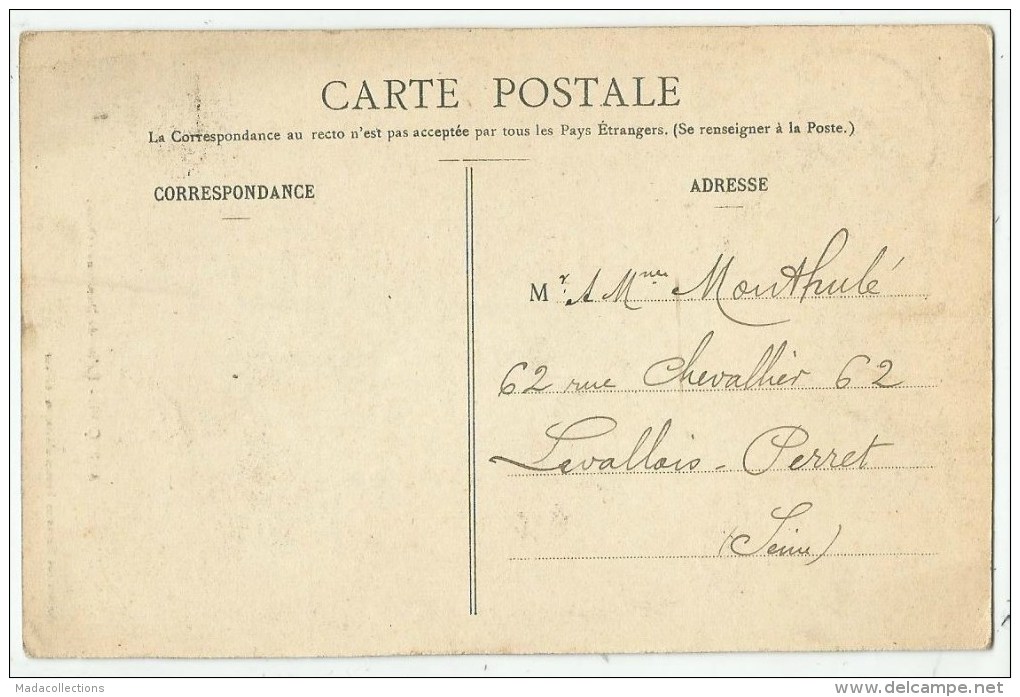 CARTE POSTALE
La Correspondance au recto n'est pas acceptée par tous les Pays Étrangers. (Se renseigner à la Poste.)
CORRESPONDANCE
ADRESSE
Mr. & Mme Monthulé
62 rue Chevallier 62
Levallois-Perret
(Seine)
Madacollections
www.delcampe.net